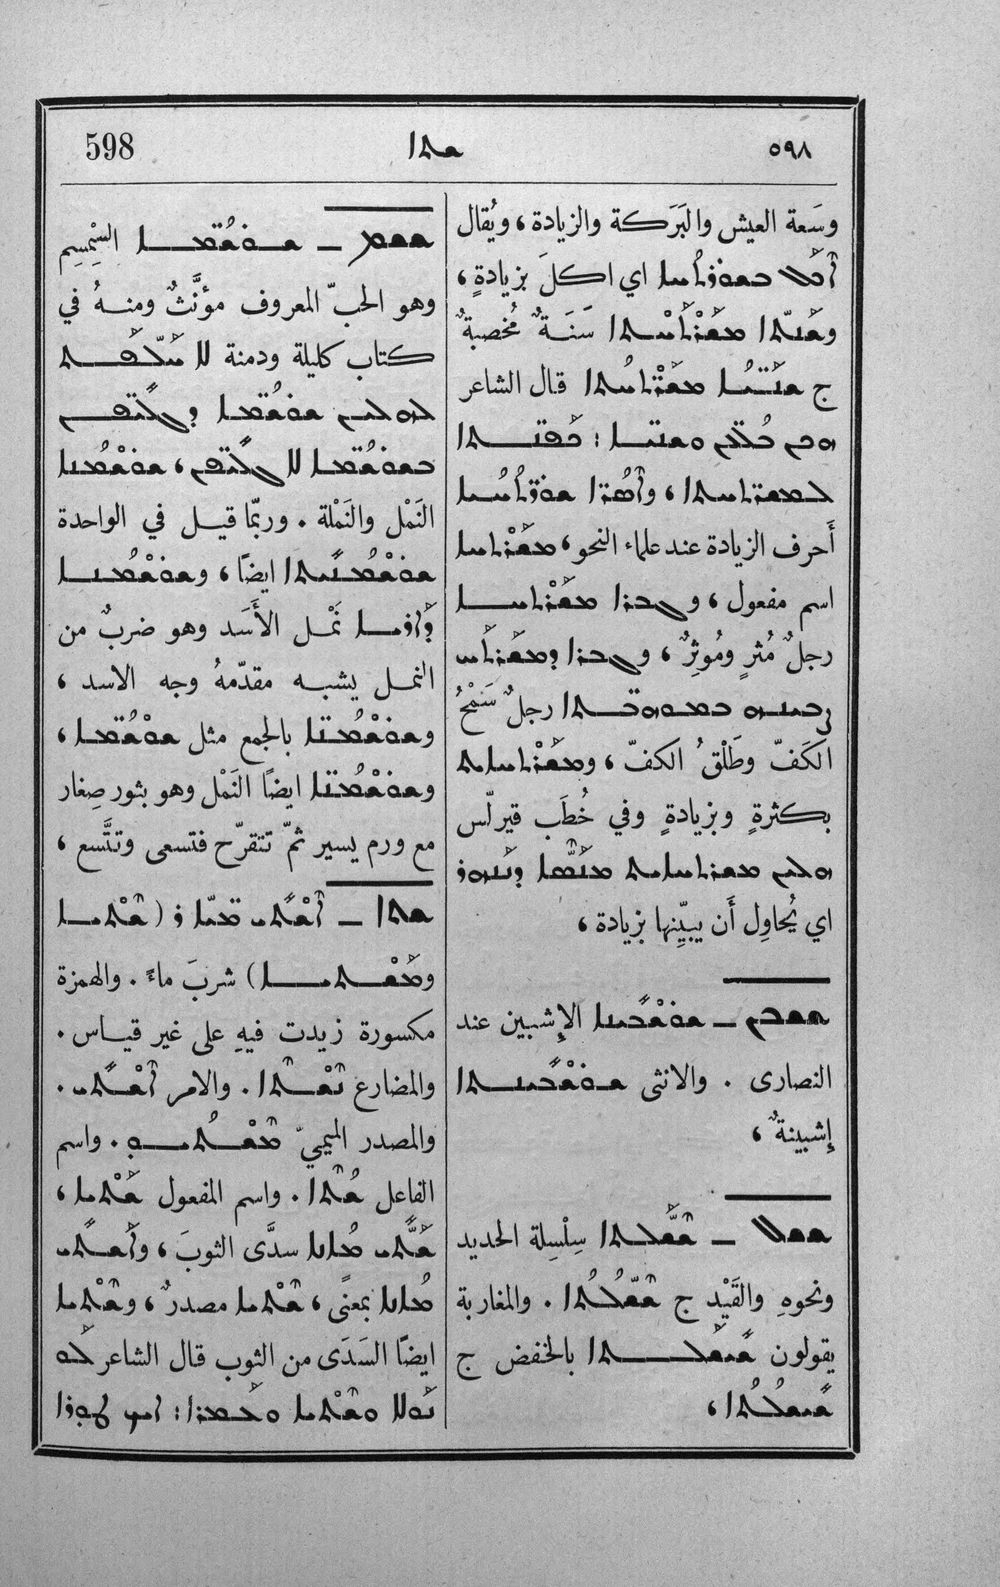 ٥٩٨ ܫܬܐ 598
وسَعة العيش والبَرَكة والزيادة، ويُقال
ܐܟܠ ܒܫܘܪܬܚܐ اي اكلَ بزيادةٍ،
ܘܫܢܬܐ ܡܫܪܬܚܬܐ سَنَةٌ مُخصبةٌ
ج ܫܢܝܐ ܡܫܪܬܚܬܐ قال الشاعر
ܠܡܫܪܬܚܬܐ،
أَحرف الزيادة عند علماء النحو، ܡܫܪܬܚܐ
اسم مفعول، ܘܓܒܪܐ ܡܫܪܬܚܐ
رجلٌ مُثرٍ ومُوثِرٌ، ܘܓܒܪܐ ܕܡܫܪܬܚ
رجلٌ سَمْحُ
الكَفّ وطَلْقُ الكفّ، ܘܡܫܪܬܚܐܝܬ
بكثرةٍ وبزيادةٍ وفي خُطَب قيرلّس
ܡܫܪܬܚܐܝܬ ܡܢܣܐ ܕܢܚܘܐ
اي يُحاوِل أَن يبيِّنها بزيادة،
ܫܫܒܢ ـ ܫܘܫܒܝܢܐ الإِشبين عند
النصارى . والانثى ܫܘܫܒܝܢܬܐ
إِشبينةٌ،
ܫܫܠ ـ ܫܫܠܬܐ سِلْسِلة الحديد
ونحوهِ والقَيْد ج ܫܫܠܬܐ . والمغاربة
يقولون ܫܝܫܠܬܐ بالخفض ج
ܫܝܫܠܬܐ،
ܫܫܡ ـ ܫܘܫܡܐ السِّمسِم
وهو الحبّ المعروف مؤنَّثٌ ومنهُ في
كتاب كليلة ودمنة ܠܐ
ܫܘܫܡܐ
ܒܫܘܫܡܐ ܠܐ ܫܘܫܡܢܐ
النَمْل والنَمْلة . وربّما قيل في الواحدة
ܫܘܫܡܢܝܬܐ ايضًا، ܘܫܘܫܡܢܐ
ܕܐܪܝܐ نَمْل الأَسَد وهو ضربٌ من
النمل يشبه مقدّمهُ وجه الاسد،
ܘܫܘܫܡܢܐ بالجمع مثل ܫܘܫܡܐ،
ܘܫܘܫܡܢܐ ايضًا النَمْل وهو بثور صِغار
مع ورم يسير ثمّ تتقرّح فتسعى وتتَّسع،
ܫܬܐ ـ ܐܫܬܝ ܡܝܐ (ܫܬܝܐ
ܘܡܫܬܝܐ) شربَ ماءً . والهمزة
مكسورة زيدت فيهِ على غير قياس .
والمضارع ܢܫܬܐ . والامر ܐܫܬܝ .
والمصدر الميميّ ܡܫܬܝܘ . واسم
الفاعل ܫܬܐ . واسم المفعول ܫܬܝܐ،
ܫܬܝ ܡܐܢܐ سدَّى الثوبَ، ܘܐܫܬܝ
ܡܐܢܐ بمعنًى، ܫܬܝܐ مصدرٌ، ܘܫܬܝܐ
ايضًا السَدَى من الثوب قال الشاعر ܠܗ
ܢܘܠܐ ܘܫܬܝܐ ܘܥܡܪܐ : ܐܝܟ ܛܘܪܐ